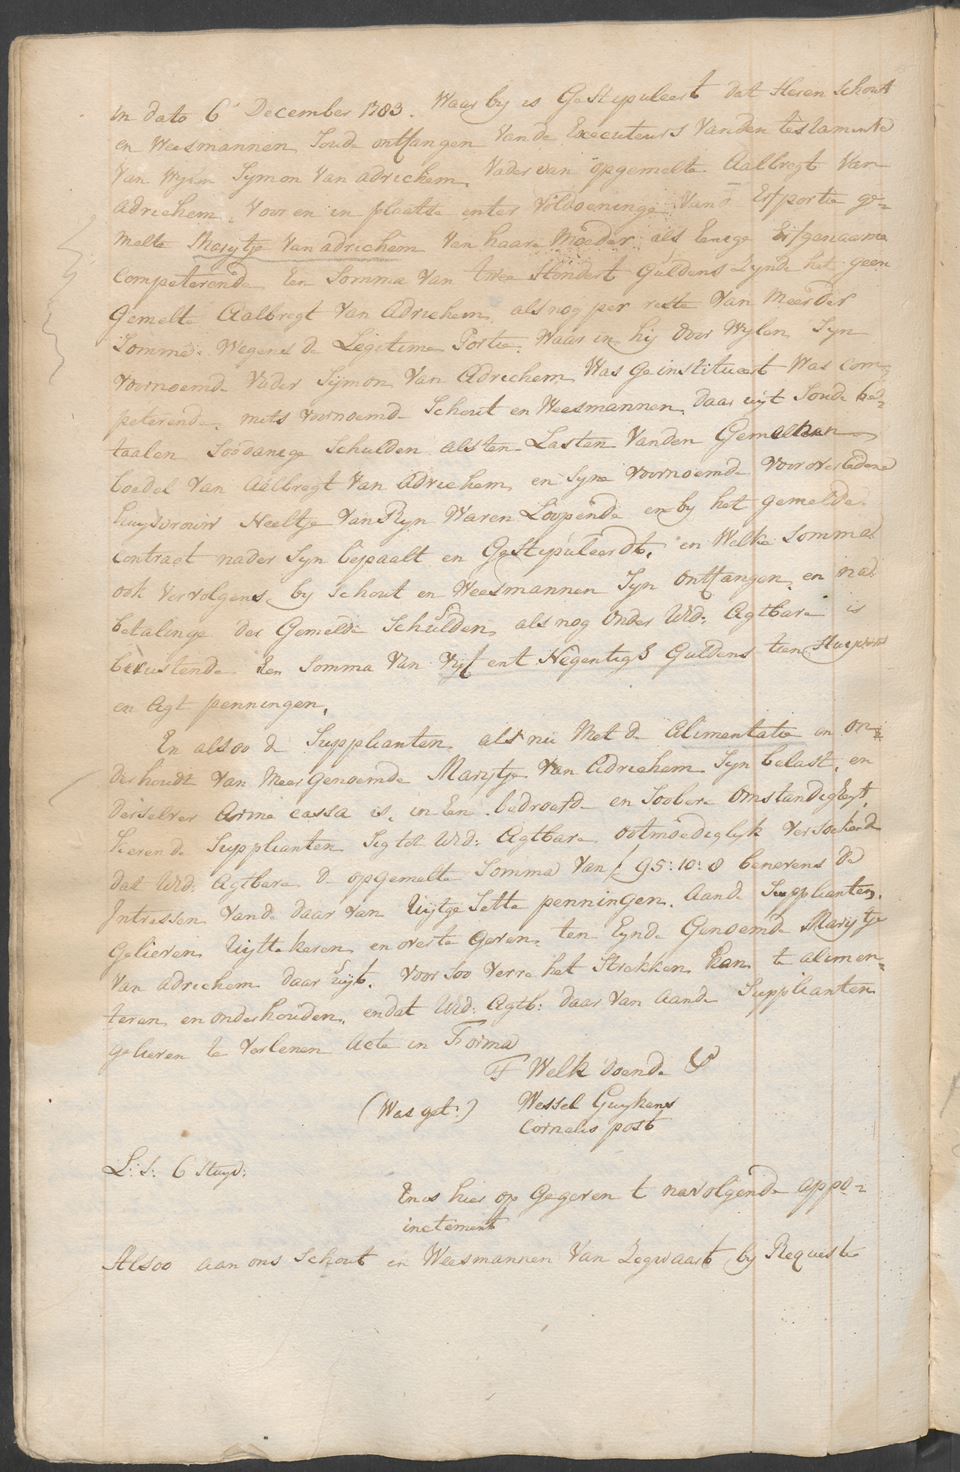 in dato 6 December 1783. Waar by is Gestipuleert dat Heren Schout
en Weesmannen, Soude ontfangen Vande Executeurs Vanden testamente
Van Wylen Symon Van adrichem, Vader van opgemelte Aalbregt Van
Adrichem, Voor en in plaatse enter Voldoeninge Van S Erfportie ge=
melte Marijtje Van adrichem Van haare Moeder als Eenige Erfgenaame
Competerende Een Somma Van twee Hondert Guldens Zynde het geen
Gemelte Aalbregt Van Adrichem, als nog per reste Van Meerder
Somme. Wegens de Legitime Portie. Waar in hij door Wylen Syn
Voornoemde Vader Symon Van Adrichem Was Geinstitueert Was com=
peterende, mits Voornoemde Schout en Weesmannen, daar uijt Soude be=
taalen Soodanige Schulden als ten Lasten Vanden Gemelten
boedel Van Aalbregt Van Adrichem, en Syne Voornoemde Vooroverledene
huysvrouw Neeltje Van Ryn Waren Loopende en by het gemelde
Contract nader Syn bepaalt en Gestipuleerdt, en Welke Somma
ook Vervolgens by Schout en Weesmannen Syn Ontfangen, en na
betalinge der Gemelde Schulden, als nog onder UEd: Agtbare is
berustende Een Somma Van Vijf ent Negentigh Guldens tien Stuyvers
en Agt penningen,
En alsoo de Supplianten als nu Met de alimentatie en on=
derhoudt Van Meergenoemde Marijtje Van Adrichem Syn belast, en
derselver Arme cassa is, in Een bedroefde en Soobere omstandigheyt,
keeren de Supplianten Sig tot UEd: Agtbare ootmoediglyk Versoekende
dat UEd: Agtbare de opgemelte Somma Van f 95:10:8 benevens de
Intressen Vande daar Van Uijtgesette penningen, aande Supplianten,
Gelieven Uijtte keeren, en over te Geven, ten Eynde Genoemde Marijtje
Van Adrichem daar uijt, Voor Soo Verre het Strekken kan te alimen=
teren, en onderhouden, en dat UEd: Agtb: daar Van aande Supplianten
gelieven te Verlenen Acte in Forma
F Welk doende &
(Was get:) Wessel Guykens
Cornelis post
L: S: 6 Stuyv:
En is hier op Gegeven t navolgende appo=
inctement
Alsoo aan ons Schout en Weesmannen Van Zegwaart by Requeste